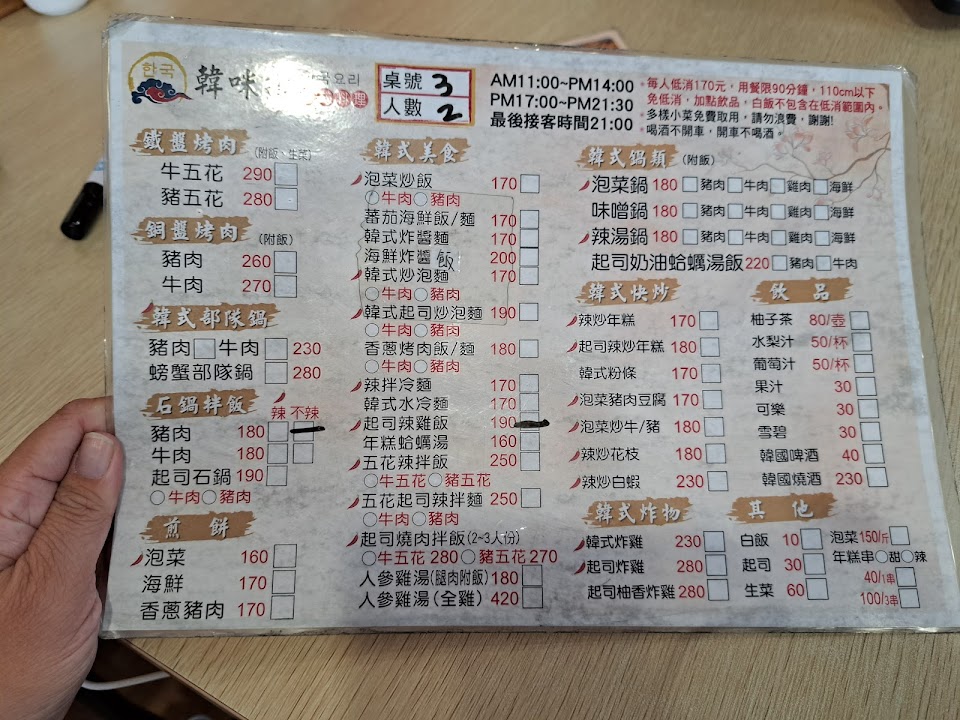 한국
韓咪
국요리
理
桌號 3
人數 2
AM11:00~PM14:00
PM17:00~PM21:30
最後接客時間21:00
*每人低消170元，用餐限90分鐘，110cm以下
免低消，加點飲品，白飯不包含在低消範圍內。
*多樣小菜免費取用，請勿浪費，謝謝!
*喝酒不開車，開車不喝酒。
鐵盤烤肉 (附飯、生菜)
牛五花 290
豬五花 280
銅盤烤肉 (附飯)
豬肉 260
牛肉 270
韓式部隊鍋
豬肉 牛肉 230
螃蟹部隊鍋 280
石鍋拌飯 辣 不辣
豬肉 180
牛肉 180
起司石鍋 190
○牛肉○豬肉
煎餅
泡菜 160
海鮮 170
香蔥豬肉 170
韓式美食
泡菜炒飯 170
○牛肉○豬肉
蕃茄海鮮飯/麵 170
韓式炸醬麵 170
海鮮炸醬飯 200
韓式炒泡麵 170
○牛肉○豬肉
韓式起司炒泡麵 190
○牛肉○豬肉
香蔥烤肉飯/麵 180
○牛肉○豬肉
辣拌冷麵 170
韓式水冷麵 170
起司辣雞飯 190
年糕蛤蠣湯 160
五花辣拌飯 250
○牛五花○豬五花
五花起司辣拌麵 250
○牛肉○豬肉
起司燒肉拌飯(2~3人份)
○牛五花 280○豬五花 270
人參雞湯(腿肉附飯) 180
人參雞湯(全雞) 420
韓式鍋類 (附飯)
泡菜鍋 180 豬肉 牛肉 雞肉 海鮮
味噌鍋 180 豬肉 牛肉 雞肉 海鮮
辣湯鍋 180 豬肉 牛肉 雞肉 海鮮
起司奶油蛤蠣湯飯 220 豬肉 牛肉
韓式快炒
辣炒年糕 170
起司辣炒年糕 180
韓式粉條 170
泡菜豬肉豆腐 170
泡菜炒牛/豬 180
辣炒花枝 180
辣炒白蝦 230
韓式炸物
韓式炸雞 230
起司炸雞 280
起司柚香炸雞 280
飲品
柚子茶 80/壺
水梨汁 50/杯
葡萄汁 50/杯
果汁 30
可樂 30
雪碧 30
韓國啤酒 40
韓國燒酒 230
其他
白飯 10
起司 30
生菜 60
泡菜 150/斤
年糕串○甜○辣
40/1串
100/3串